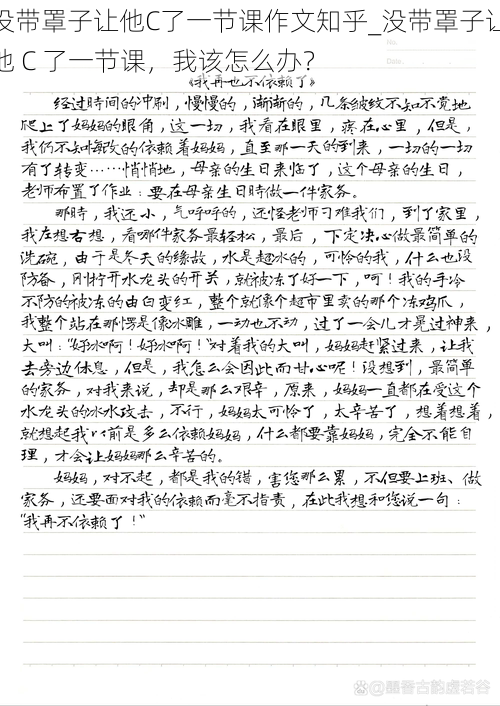 没带罩子让他C了一节课作文知乎_没带罩子让
他 C 了一节课，我该怎么办?
No.
Date
《我再也不依赖了》
经过时间的冲刷，慢慢的，渐渐的，几条皱纹不知不觉地
爬上了妈妈的眼角，这一切，我看在眼里，疼在心里，但是，
我仍不知悔改的依赖着妈妈，直至那一天的到来，一切的一切
有了转变……悄悄地，母亲的生日来临了，这个母亲的生日，
老师布置了作业：要在母亲生日时做一件家务。
那时，我还小，气呼呼的，还怪老师刁难我们，到了家里，
我左想右想，看哪件家务最轻松，最后，下定决心做最简单的
洗碗，由于是冬天的缘故，水是超冰的，可怜的我，什么也没
防备，刚拧开水龙头的开关，就被冻了好一下，呵！我的手冷
不防的被冻的由白变红，整个就像个超市里卖的那个冻鸡爪，
我整个站在那愣是像冰雕，一动也不动，过了一会儿才晃过神来，
大叫："好冰啊！好冰啊！"对着我的大叫，妈妈赶紧过来，让我
去旁边休息，但是，我怎么会因此而甘心呢！没想到，最简单
的家务，对我来说，却是那么艰辛，原来，妈妈一直都在受这个
水龙头的冰水攻击，不行，妈妈太可怜了，太辛苦了，想着想着，
就想起我以前是多么依赖妈妈，什么都要靠妈妈，完全不能自
理，才会让妈妈那么辛苦的。
妈妈，对不起，都是我的错，害您那么累，不但要上班、做
家务，还要面对我的依赖而毫不指责，在此我想和您说一句：
"我再不依赖了！"